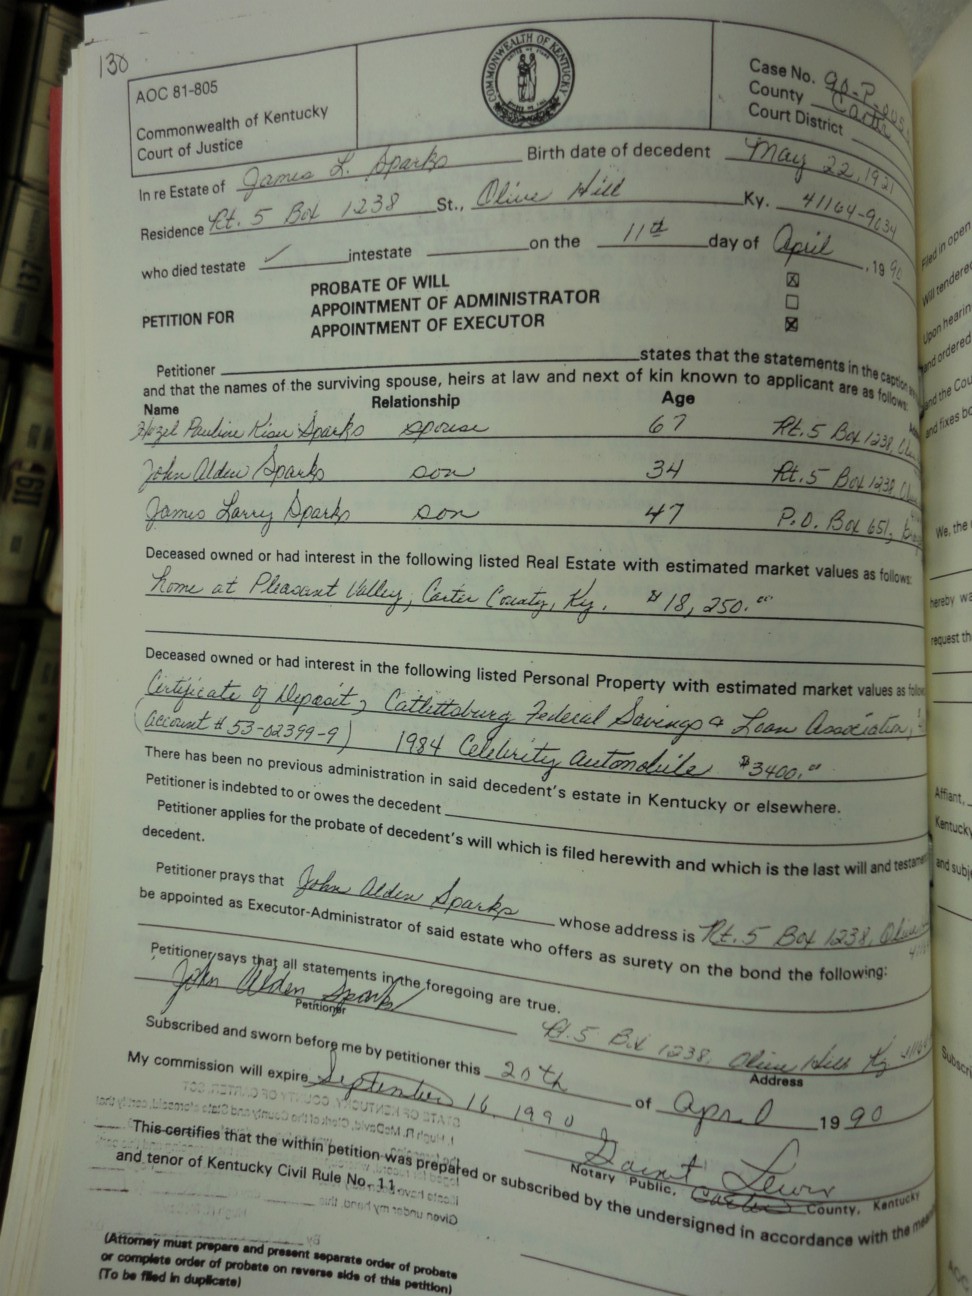 130
AOC 81-805
Commonwealth of Kentucky
Court of Justice
COMMONWEALTH OF KENTUCKY
Case No. 90-P-
County Carter
Court District
In re Estate of James L. Sparks Birth date of decedent May 22, 1921
Residence Rt. 5 Box 1238 St., Olive Hill Ky. 41164-9634
who died testate ✓ intestate on the 11th day of April, 1990
PETITION FOR
PROBATE OF WILL ☒
APPOINTMENT OF ADMINISTRATOR ☐
APPOINTMENT OF EXECUTOR ☒
Petitioner states that the statements in the caption
and that the names of the surviving spouse, heirs at law and next of kin known to applicant are as follows:
Name Relationship Age
Hazel Pauline Kiser Sparks spouse 67 Rt. 5 Box 1238,
John Alden Sparks son 34 Rt. 5 Box 1238,
James Larry Sparks son 47 P.O. Box 651,
Deceased owned or had interest in the following listed Real Estate with estimated market values as follows:
home at Pleasant Valley, Carter County, Ky. $18,250.00
Deceased owned or had interest in the following listed Personal Property with estimated market values as follow
Certificate of Deposit, Catlettsburg Federal Savings & Loan Association,
(account # 53-02399-9) 1984 Celebrity Automobile $3400.00
There has been no previous administration in said decedent's estate in Kentucky or elsewhere.
Petitioner is indebted to or owes the decedent
Petitioner applies for the probate of decedent's will which is filed herewith and which is the last will and testame
decedent.
Petitioner prays that John Alden Sparks whose address is Rt. 5 Box 1238, Olive
be appointed as Executor-Administrator of said estate who offers as surety on the bond the following:
Petitioner says that all statements in the foregoing are true.
John Alden Sparks
Petitioner
Rt. 5 Box 1238, Olive Hill Ky
Address
Subscribed and sworn before me by petitioner this 20th of April 1990
My commission will expire September 16, 1990
Lewis
Notary Public, Carter County, Kentucky
This certifies that the within petition was prepared or subscribed by the undersigned in accordance with the
and tenor of Kentucky Civil Rule No. 11.
(Attorney must prepare and present separate order of probate
or complete order of probate on reverse side of this petition)
(To be filed in duplicate)
Filed in open
Will tendered
Upon hearin
and ordered
and the Cou
and fixes bo
We, the
hereby wa
request th
Affiant,
Kentucky
and subj
Subscri